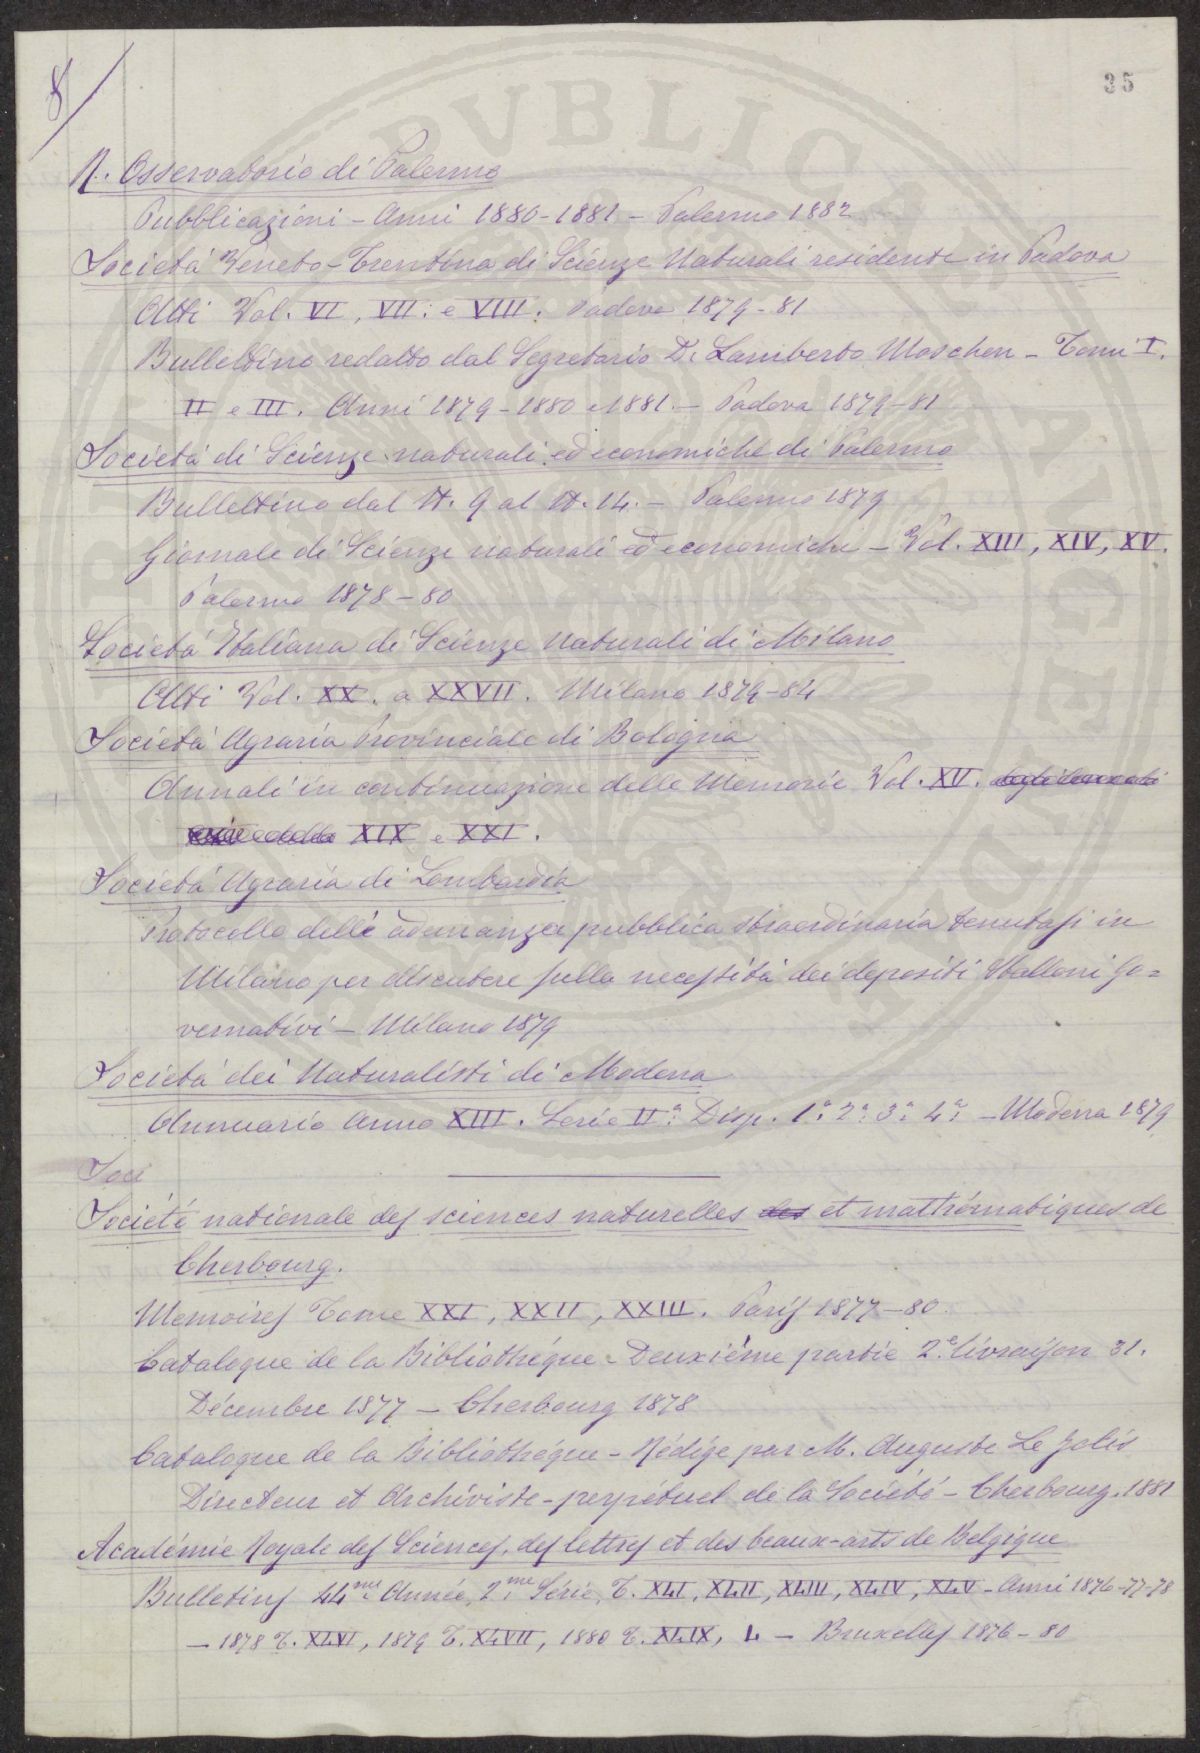 8/
35
R. Osservatorio di Palermo
Pubblicazioni - Anni 1880-1881 - Palermo 1882
Società Veneto-Trentina di Scienze Naturali residente in Padova
Atti Vol. VI, VII. e VIII. Padova 1879-81
Bullettino redatto dal Segretario D. Lamberto Moschen - Tomi I.
II e III. Anni 1879-1880 e 1881. - Padova 1879-81
Società di Scienze naturali ed economiche di Palermo
Bullettino dal N. 9 al N. 14. - Palermo 1879
Giornale di Scienze naturali ed economiche - Vol. XIII, XIV, XV.
Palermo 1878-80
Società Italiana di Scienze Naturali di Milano
Atti Vol. XX. a XXVII. Milano 1879-84
Società Agraria Provinciale di Bologna
Annali in continuazione delle Memorie Vol. XV.
XIX e XXI.
Società Agraria di Lombardia
Protocollo delle adunanza pubblica straordinaria tenutasi in
Milano per discutere sulla necessità dei depositi Stalloni Go=
vernativi - Milano 1879
Società dei Naturalisti di Modena
Annuario Anno XIII. Serie IIª Disp. 1ª 2ª 3ª 4ª - Modena 1879
Soci
Société nationale des sciences naturelles des et mathématiques de
Cherbourg.
Memoires Tome XXI, XXII, XXIII. Paris 1877-80.
Catalogue de la Bibliothéque - Deuxiéme partie 2e livraison 31.
Décembre 1877 - Cherbourg 1878
Catalogue de la Bibliothéque - Rédige par M. Auguste Le Jolis
Directeur et Archiviste-perpétuel de la Société - Cherbourg. 1881
Académie Royale des Sciences, des lettres et des beaux-arts de Belgique
Bulletins 44me Année, 2me Série, T. XLI, XLII, XLIII, XLIV, XLV - Anni 1876-77-78
- 1878 T. XLVI, 1879 T. XLVII, 1880 T. XLIX, L - Bruxelles 1876-80